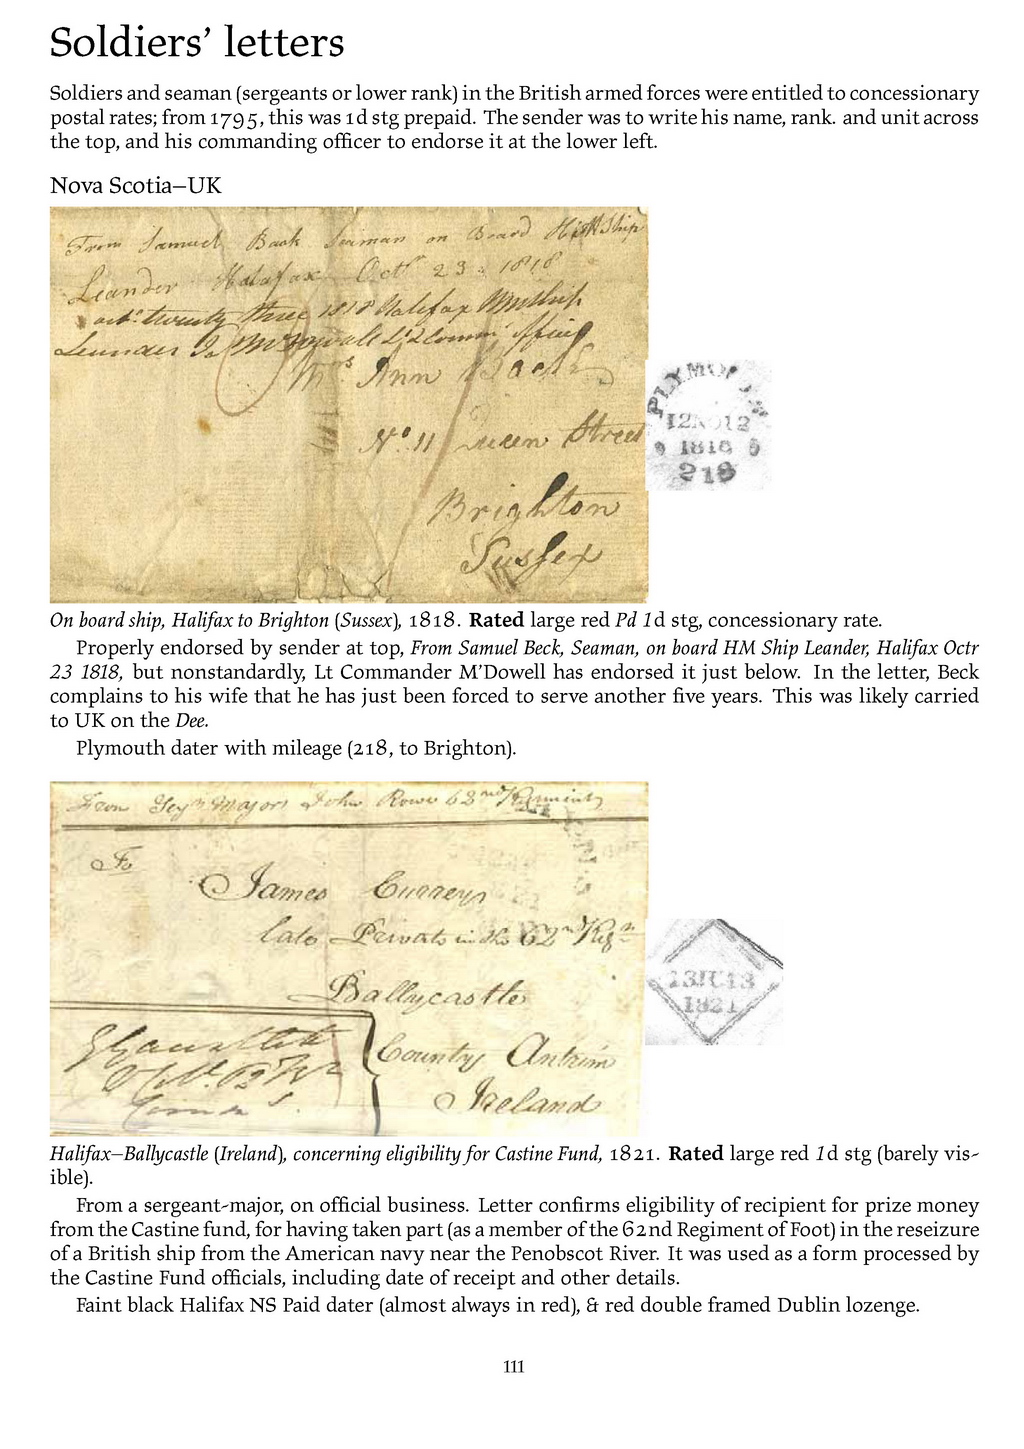 Soldiers’ letters
Soldiers and seaman (sergeants or lower rank) in the British armed forces were entitled to concessionary
postal rates; from 1795, this was 1d stg prepaid. The sender was to write his name, rank. and unit across
the top, and his commanding officer to endorse it at the lower left.
Nova Scotia–UK
From Samuel Back Seaman on Board HM Ship
Leander Halafax Octr 23. 1818
octr. twenty three 1818 Halifax
Leander
Mrs Ann Back
No. 11 Queen Street
Brighton
Sussex
12NO12
1818
218
On board ship, Halifax to Brighton (Sussex), 1818. Rated large red Pd 1d stg, concessionary rate.
Properly endorsed by sender at top, From Samuel Beck, Seaman, on board HM Ship Leander, Halifax Octr
23 1818, but nonstandardly, Lt Commander M’Dowell has endorsed it just below. In the letter, Beck
complains to his wife that he has just been forced to serve another five years. This was likely carried
to UK on the Dee.
Plymouth dater with mileage (218, to Brighton).
From Major John Rowe 62nd Regiment
To
James Currey
late Private in the 62nd Regn
Ballycastle
County Antrim
Ireland
13JU13
1821
Halifax–Ballycastle (Ireland), concerning eligibility for Castine Fund, 1821. Rated large red 1d stg (barely vis-
ible).
From a sergeant-major, on official business. Letter confirms eligibility of recipient for prize money
from the Castine fund, for having taken part (as a member of the 62nd Regiment of Foot) in the reseizure
of a British ship from the American navy near the Penobscot River. It was used as a form processed by
the Castine Fund officials, including date of receipt and other details.
Faint black Halifax NS Paid dater (almost always in red), & red double framed Dublin lozenge.
111